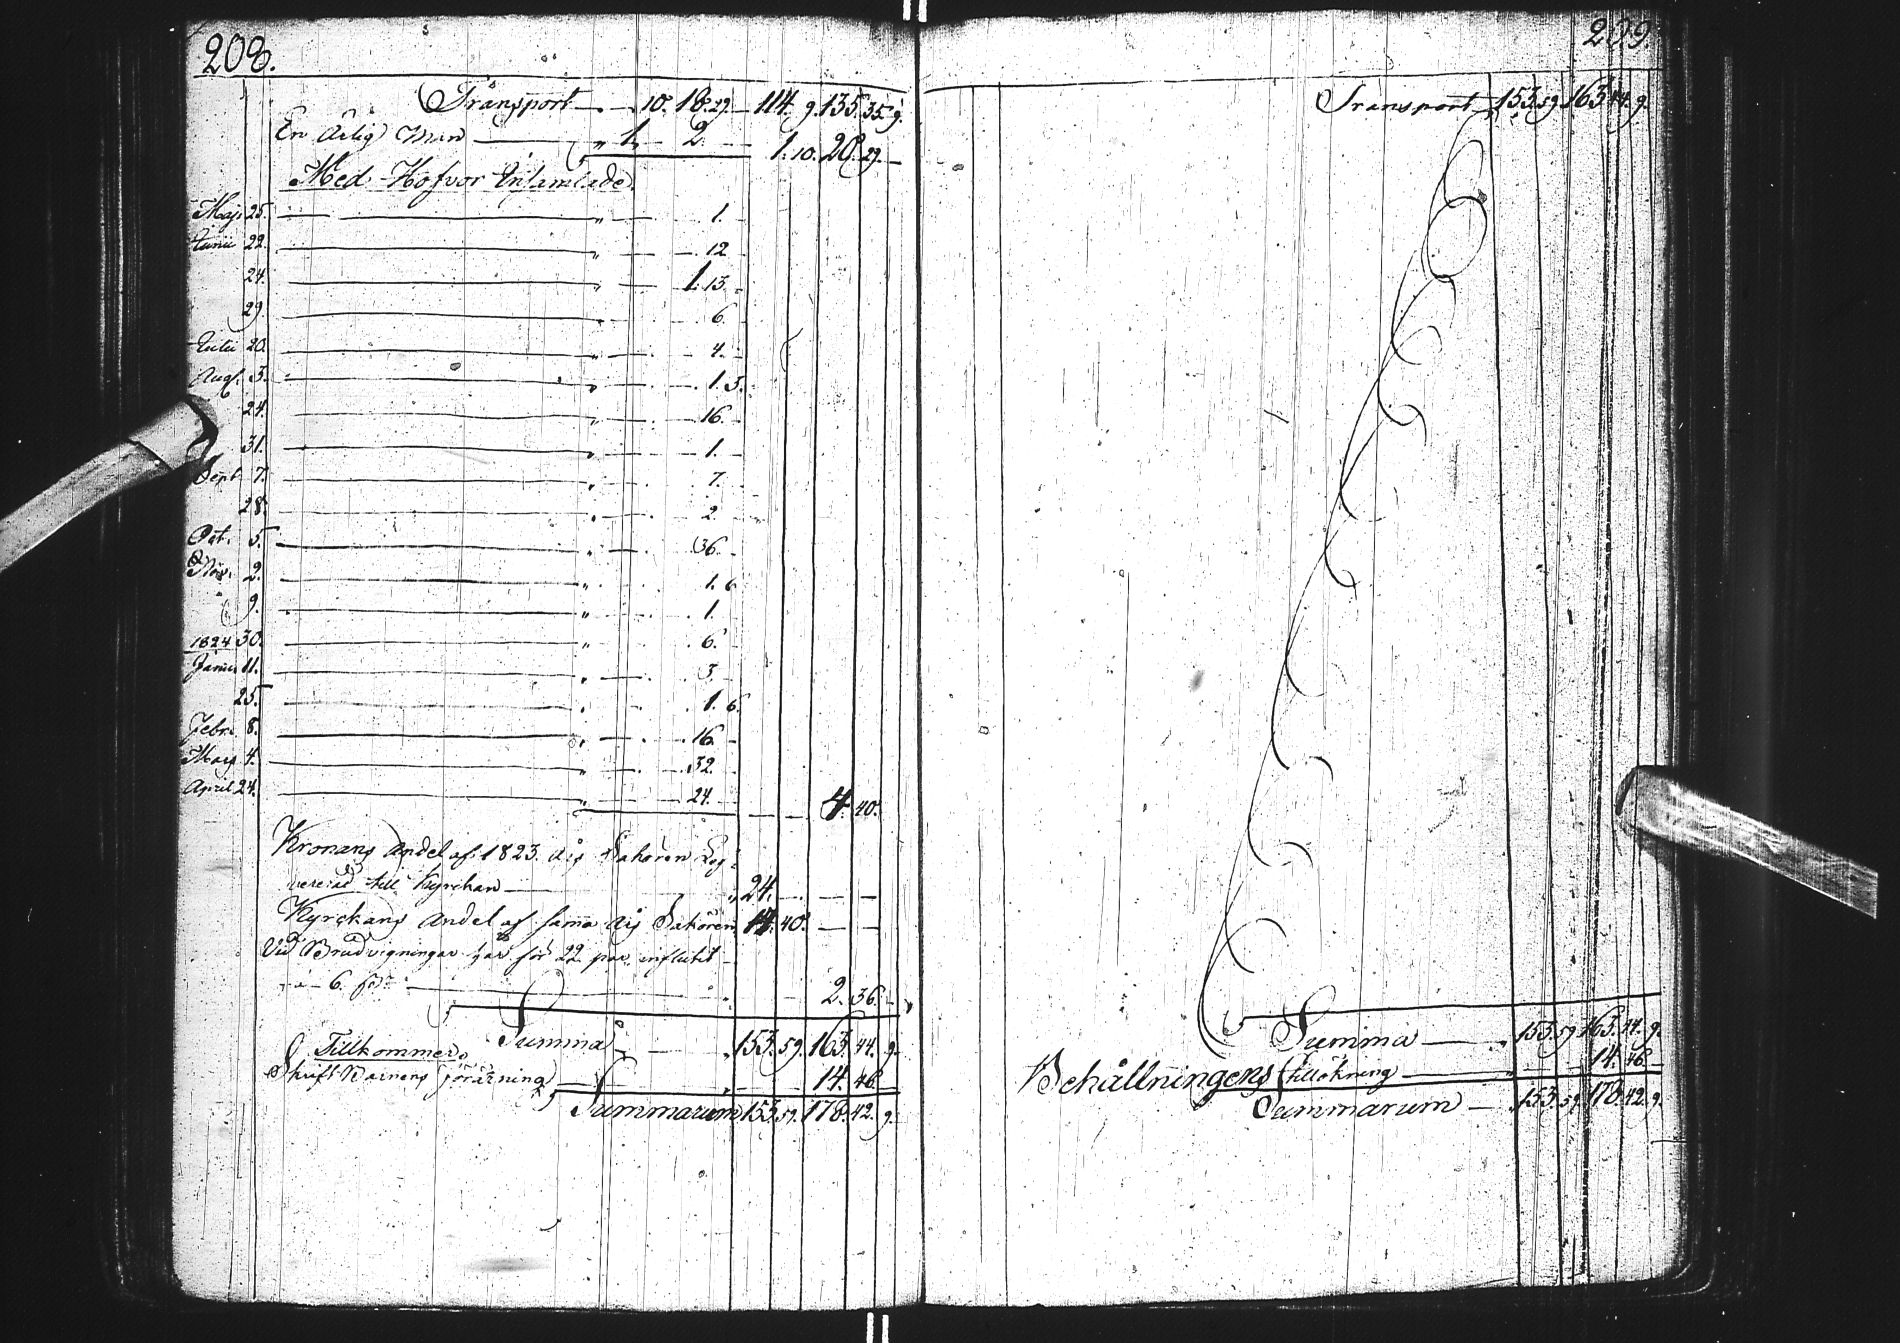 208.
Transport — 10. 18. 29. — 114. 9. 135. 35. 9.
En ärlig Man — " 1. — 2. — 1. 10. 20. 29. —
Med Hofvor Insamlade.
Maji 25. — " — 1.
Junii 22. — " — 12
24. — " — 1. 13.
29. — " — 6.
Julii 20. — " — 4.
Aug. 3. — " — 1. 3.
24. — " — 16.
31. — " — 1.
Sept. 7. — " — 7.
28. — " — 2.
Oct. 5. — " — 36.
Nov. 2. — " — 1. 6
9. — " — 1.
30. — " — 6.
1824
Janu. 11. — " — 3.
25. — " — 1. 6.
Febr. 8. — " — 16.
Mars 4. — " — 32.
April 24. — " — 24. — 4. 40.
Kronans Andel af 1823. års Sakören Lef-
vererad till Kyrckan — 24. — —
Kyrckans andel af samma års Sakören 14. 40. — —
Vid Brudvigningar har för 22 par influtit
a 6. s. — 2. 36. —
Summa — 153. 59. 163. 44. 9.
Tillkommer
Skriftbarnens förärning — 14. 46.
Summarum 153. 59. 178. 42. 9.
209
Transport 153. 59. 163. 44. 9.
Summa — 153. 59. 163. 44. 9.
Behållningens tillökning — 14. 46.
Summarum — 153. 59. 178. 42. 9.